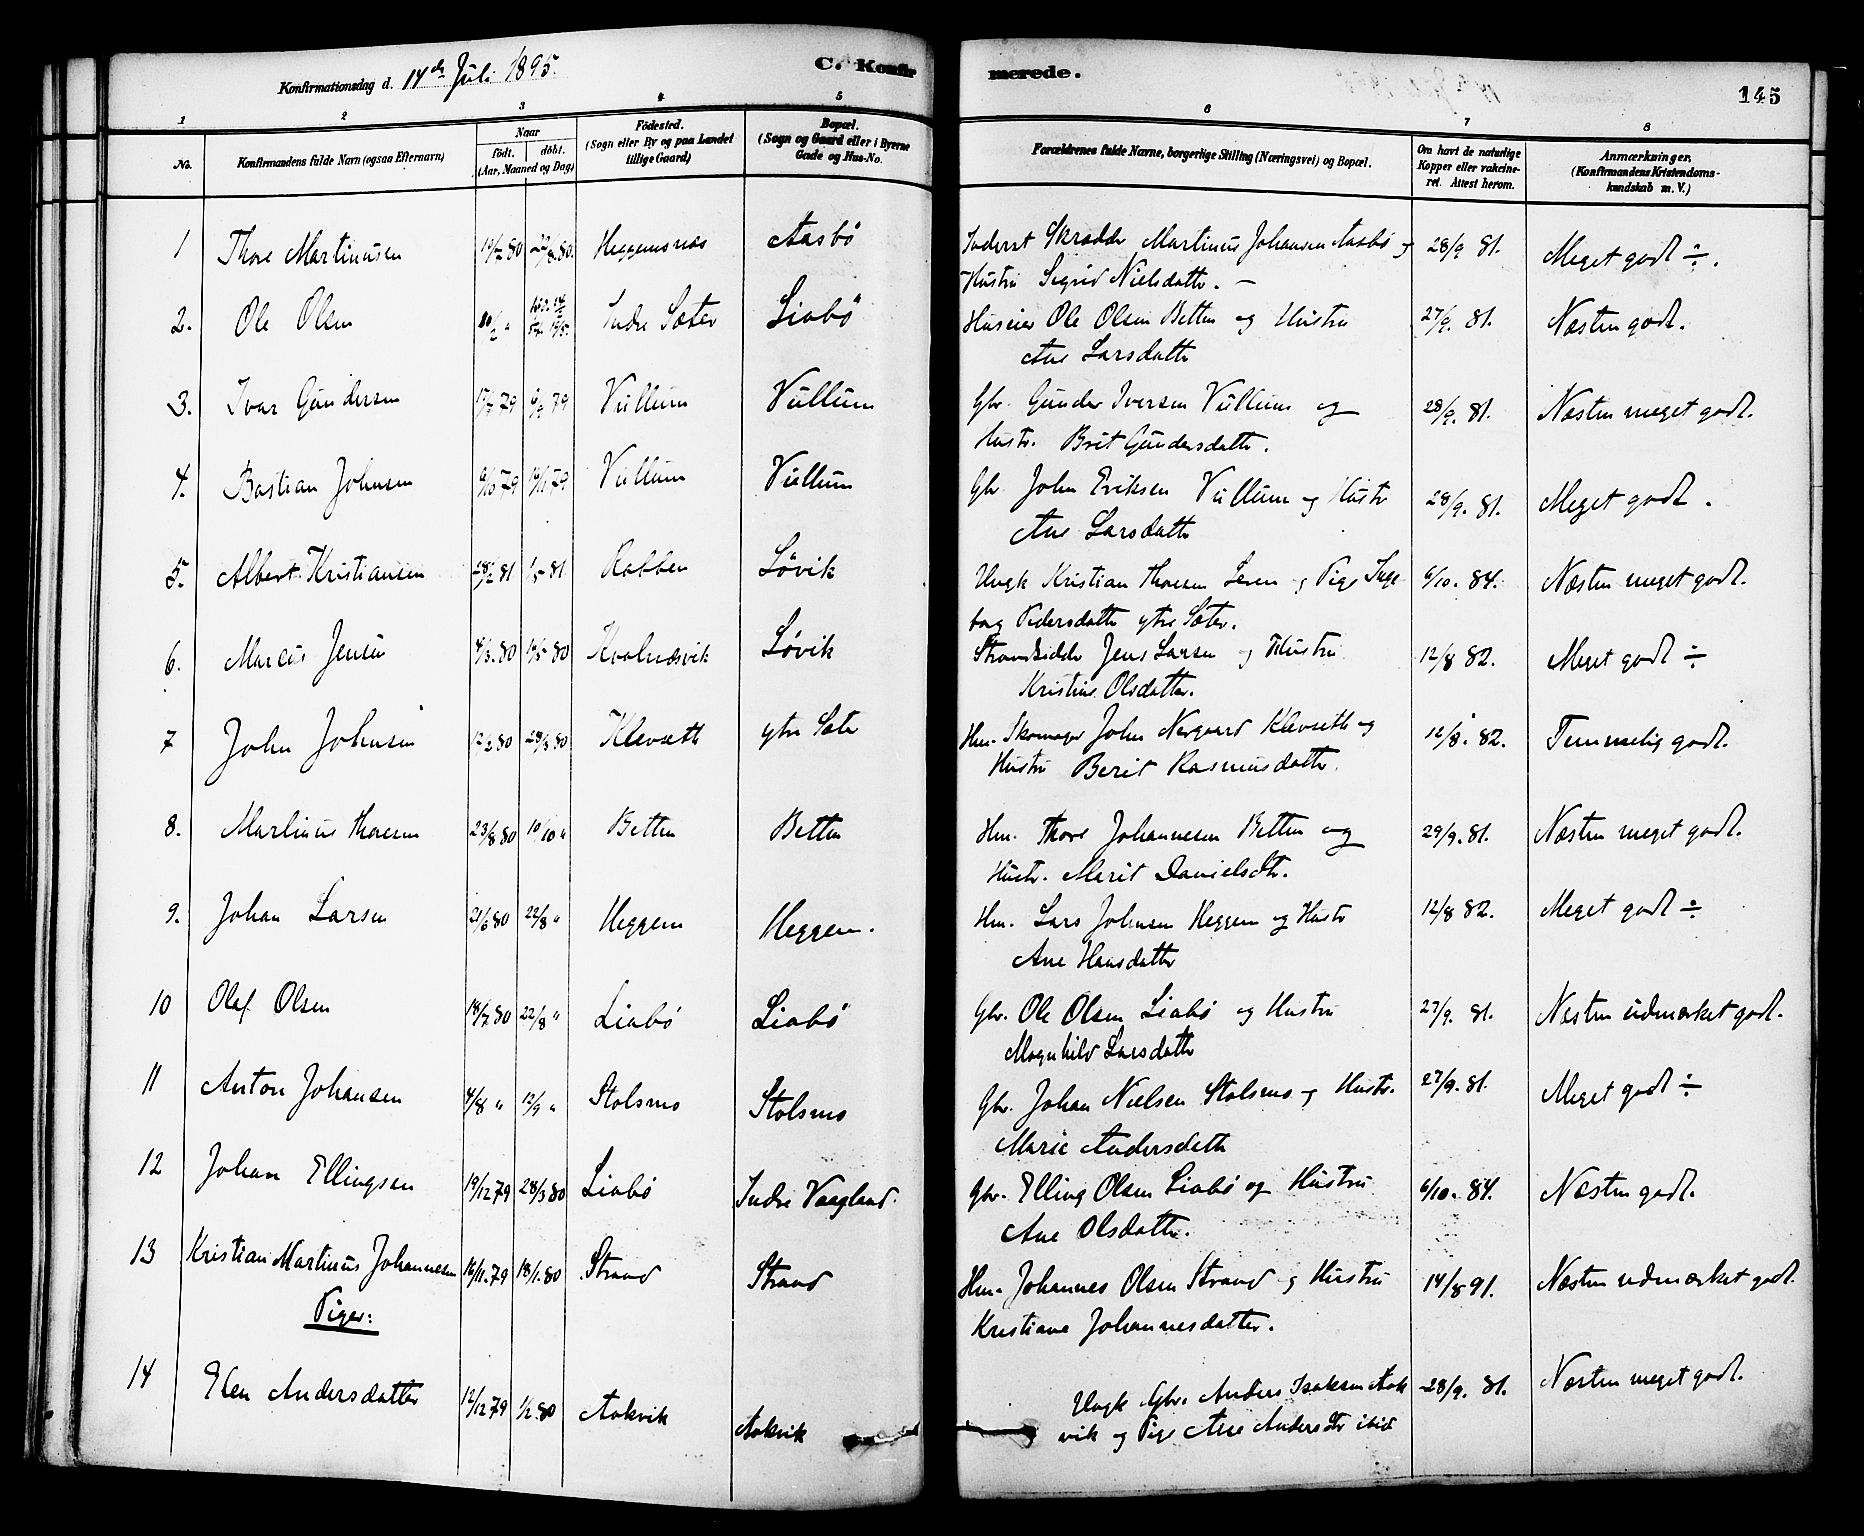 Konfirmationsdag d. 14de Juli 1895.
C. Konfirmerede.
145
1 2 3 4 5 6 7 8
No.
Konfirmandens fulde Navn (ogsaa Efternavn)
Naar
födt. döbt.
(Aar, Maaned og Dag)
Födested.
(Sogn eller By og paa Landet
tillige Gaard)
Bopæl.
(Sogn og Gaard eller i Byerne
Gade og Hus-No.
Forældrenes fulde Navne, borgerlige Stilling (Næringsvei) og Bopæl.
Om havt de naturlige
Kopper eller vakcineret. Attest herom.
Anmærkninger.
(Konfirmandens Kristendomskundskab m. V.)
1 Thore Martinusen 80 22/8 80. Heggemsnæs Aasbö Inderst Skrædder Martinus Johansen Aasbö og 28/9 81. Meget godt ÷.
Hustru Sigrid Nielsdatter. –
2. Ole Olsen 10/2 " Indre Sæter Liabö Huseier Ole Olsen Betten og Hustru 27/9. 81. Næsten godt.
Ane Larsdatter
3. Ivar Gundersen 17/7 79 9 79 Vullum Vullum Gbr. Gunder Iversen Vullum og 28/9. 81. Næsten meget godt.
Hustr. Brit Gundersdatter.
4. Bastian Johnsen 9/10 79 79 Vullum Vullum Gbr John Eriksen Vullum og Hustr 28/9. 81. Meget godt.
Ane Larsdatter
5. Albert Kristiansen 28/2 81 1/5 81 Rabben Lövik Ungk Kristian Thoresen Leren og Pige Inge- 6/10. 84. Næsten meget godt.
borg Pedersdatter ytre Sæter.
6. Marcus Jensen 4/3. 80 5 80 Kvalnæsvik Lövik Strandsidder Jens Larsen og Hustru 12/8 82. Meget godt ÷
Kristine Olsdatter.
7 John Johnsen 12/2 80 28/3 80 Klevseth ytre Sæter Hm. Skomager John Nergaard Klevseth og 12/8. 82. Temmelig godt.
Hustru Berit Rasmusdatter.
8. Martinus Thoresen 23/8 80 10/10 " Betten Betten Hm. Thore Johannesen Betten og 29/9. 81. Næsten meget godt.
Hustr. Marit Danielsdtr.
9. Johan Larsen 21/6 80 22/8 " Heggem Heggem. Hm. Lars Johnsen Heggem og Hustr 12/8 82. Meget godt ÷
Ane Hansdatter
10 Olaf Olsen 18/7 80 22/8 " Liabö Liabö Gbr. Ole Olsen Liabö og Hustru 27/9. 81. Næsten udmærket godt.
Magnhild Larsdatter
11 Anton Johansen 4/8 " 12/9 " Stolsmo Stolsmo Gbr. Johan Nielsen Stolsmo og Hustr. 27/9. 81. Meget godt ÷
Marie Andersdatter
12 Johan Ellingsen 19/12 79 28/3 80 Liabö Indre Vaagland. Gbr. Elling Olsen Liabö og Hustru 6/10. 84. Næsten godt.
Ane Olsdatter.
13 Kristian Martinus Johannesen 16/11. 79 18/1. 80 Strand Strand Hm. Johannes Olsen Strand og Hustru 14/8 91. Næsten udmærket godt.
Kristiane Johannesdatter.
Piger:
14 Elen Andersdatter 12/12 79 1/2. 80 Aakvik Aakvik Ungk Gbr. Anders Isaksen Aak 28/9. 81. Næsten meget godt.
vik og Pige Ane Andersdtr ibid